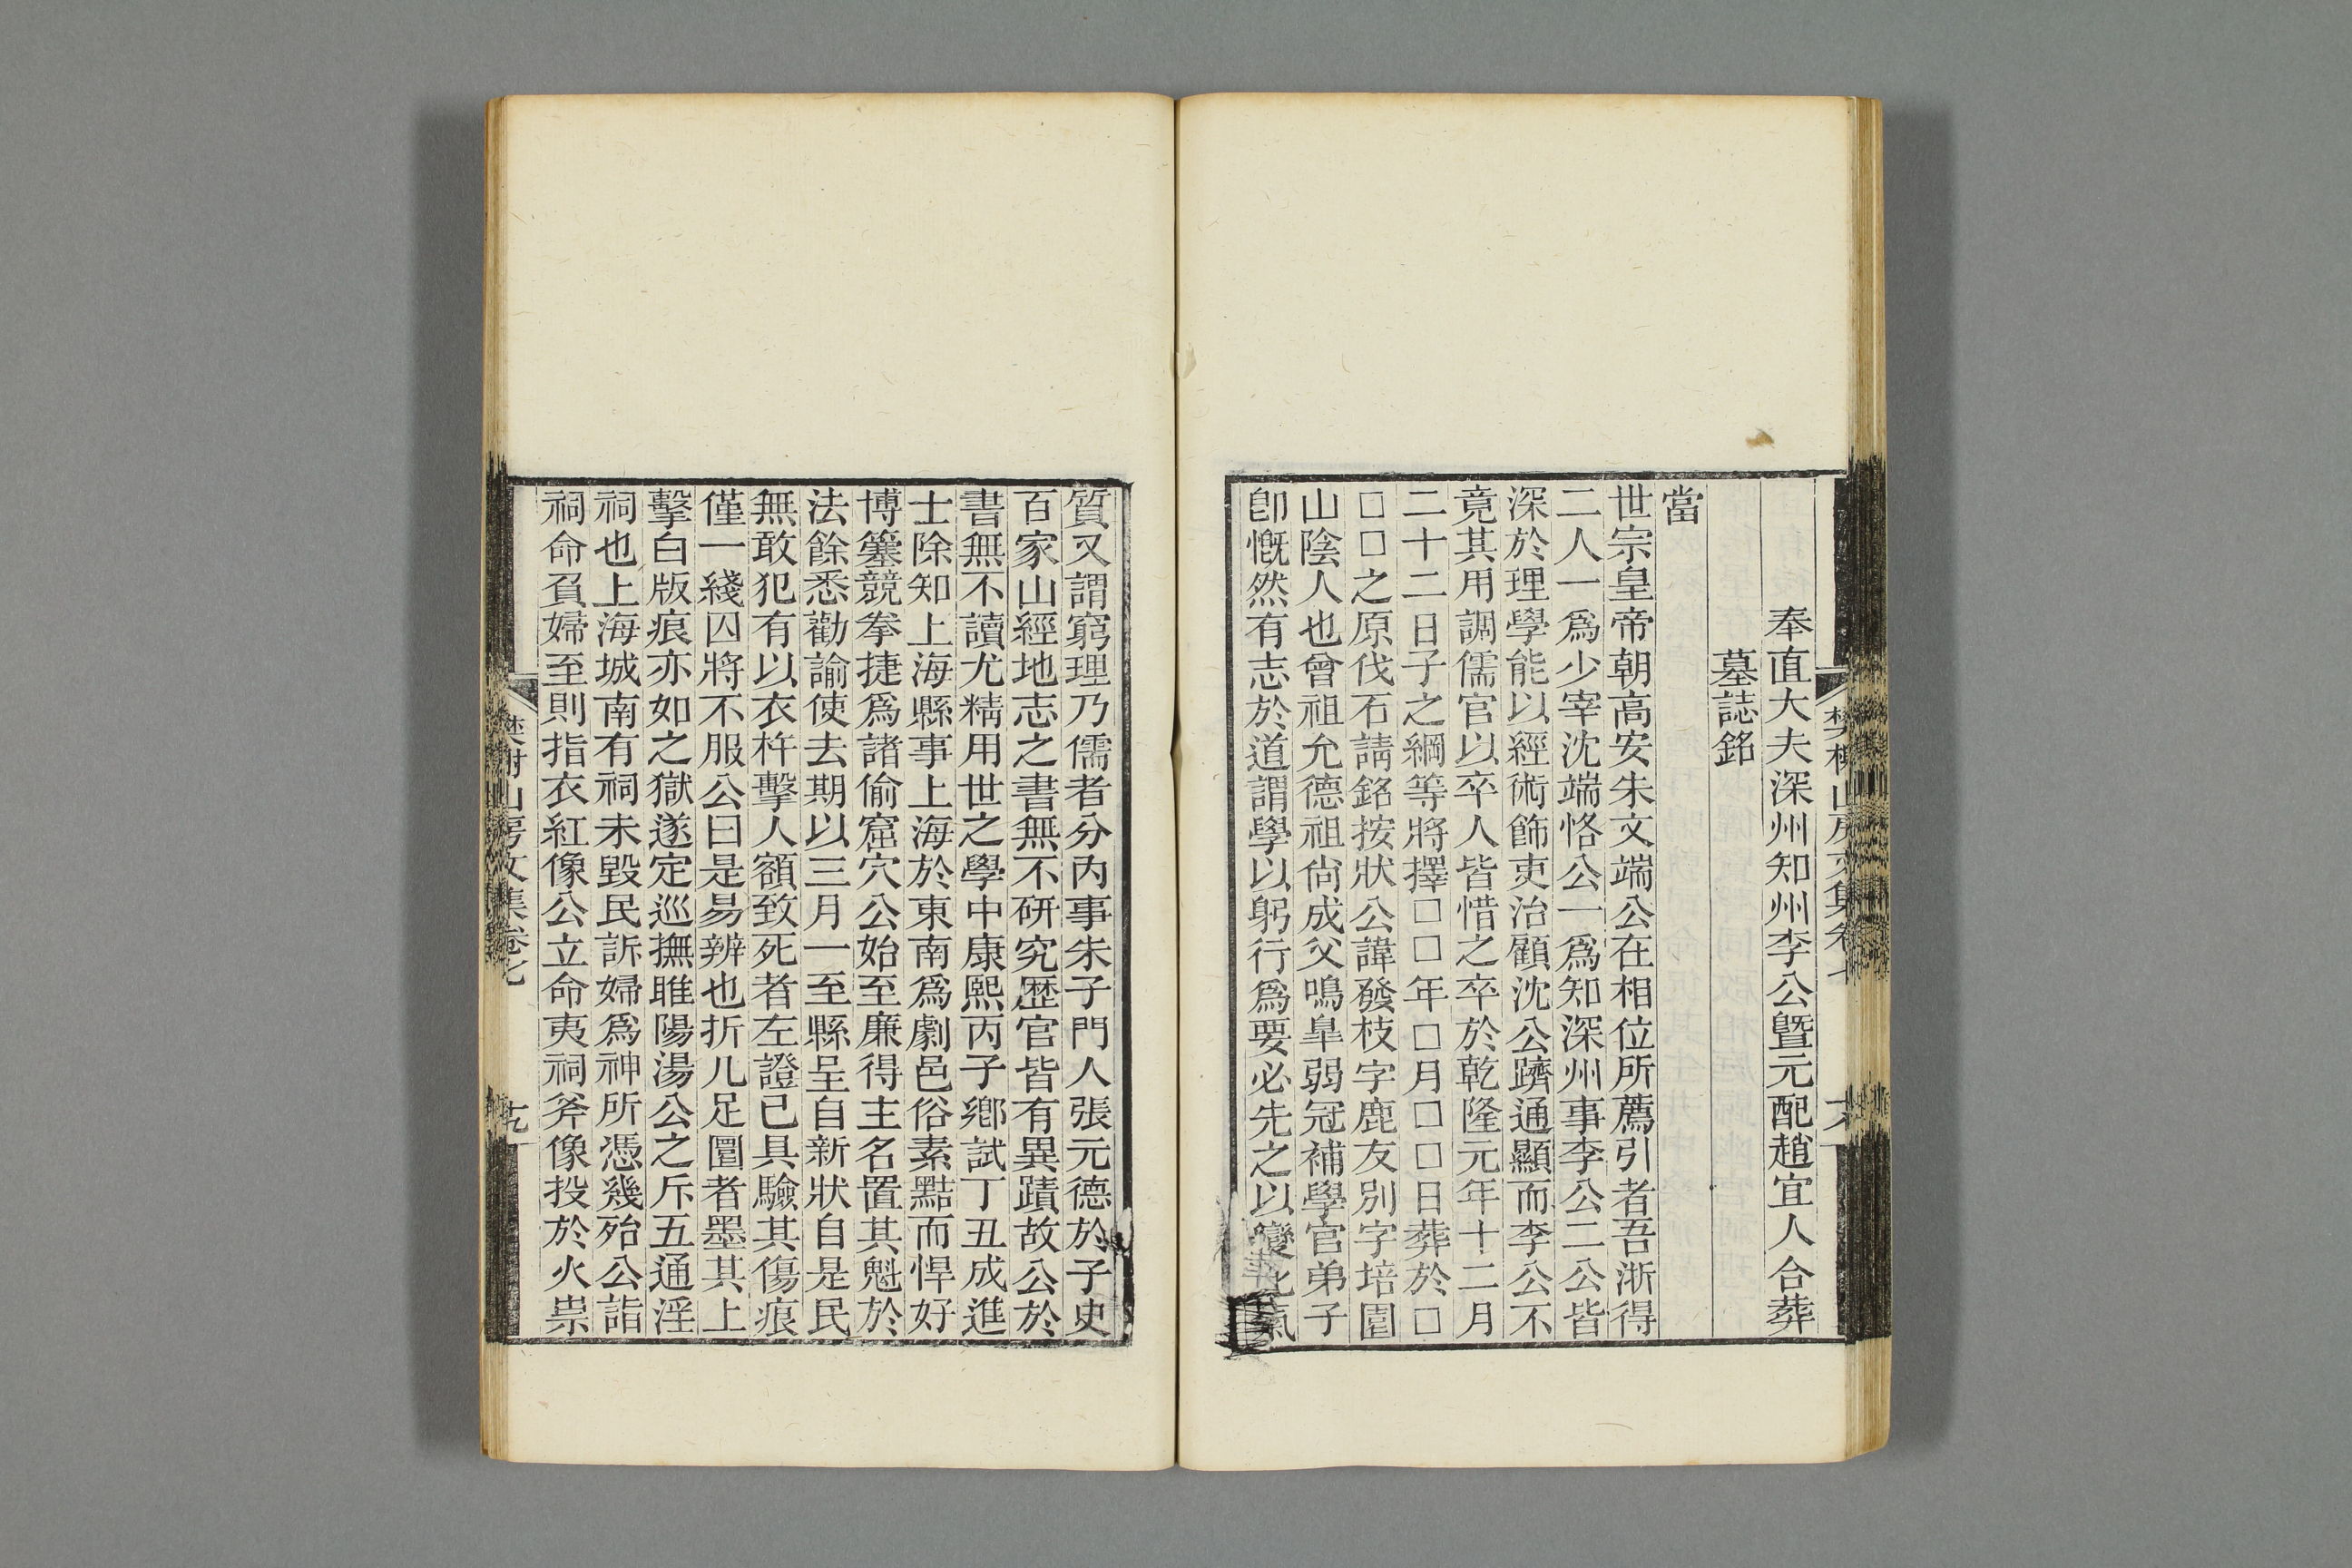 奉直大夫深州知州李公曁元配趙宜人合葬
墓誌銘
當
世宗皇帝朝高安朱文端公在相位所薦引者吾浙得
二人一爲少宰沈端恪公一爲知深州事李公二公皆
深於理學能以經術飾吏治顧沈公躋通顯而李公不
竟其用調儒官以卒人皆惜之卒於乾隆元年十二月
二十二日子之綱等將擇□□年□月□□日葬於□
□□之原伐石請銘按狀公諱發枝字鹿友別字培園
山陰人也曾祖允德祖尙成父鳴臯弱冠補學官弟子
卽慨然有志於道謂學以躬行爲要必先之以變化氣
質又謂窮理乃儒者分內事朱子門人張元德於子史
百家山經地志之書無不研究歷官皆有異蹟故公於
書無不讀尤精用世之學中康熙丙子鄉試丁丑成進
士除知上海縣事上海於東南爲劇邑俗素黠而悍好
博簺競拳捷爲諸偷窟穴公始至廉得主名置其魁於
法餘悉勸諭使去期以三月一至縣呈自新狀自是民
無敢犯有以衣杵擊人額致死者左證已具驗其傷痕
僅一綫囚將不服公曰是易辨也折几足圍者墨其上
擊白版痕亦如之獄遂定巡撫睢陽湯公之斥五通淫
祠也上海城南有祠未毀民訴婦爲神所憑幾殆公詣
祠命負婦至則指衣紅像公立命夷祠斧像投於火祟
樊榭山房文集卷七